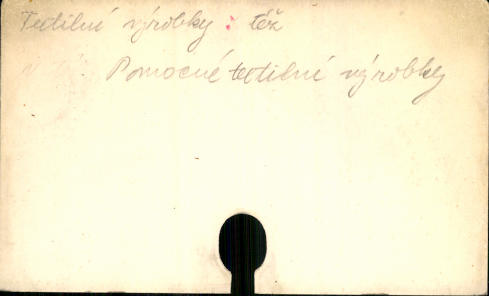 Textilní výrobky : též
Pomocné textilní výrobky